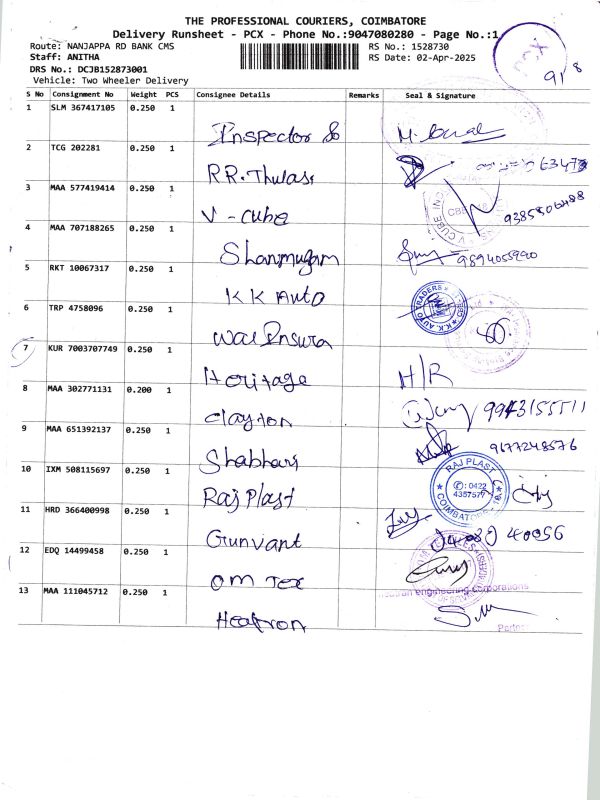 THE PROFESSIONAL COURIERS, COIMBATORE
Delivery Runsheet - PCX - Phone No.:9047080280 - Page No.:1
PCX
91 8
Route: NANJAPPA RD BANK CMS
Staff: ANITHA
DRS No.: DCJB152873001
Vehicle: Two Wheeler Delivery
RS No.: 1528730
RS Date: 02-Apr-2025
S No Consignment No Weight PCS Consignee Details Remarks Seal & Signature
1 SLM 367417105 0.250 1 Inspector
2 TCG 202281 0.250 1 RR.Thulasi
3 MAA 577419414 0.250 1 V-Cube
V CUBE INC
4 MAA 707188265 0.250 1 Shanmugam 9894055990
5 RKT 10067317 0.250 1 KK Auto
K.K. AUTO TRADERS
6 TRP 4758096 0.250 1
7 KUR 7003707749 0.250 1 Heritage H/R
8 MAA 302771131 0.200 1 Clayton 9943155511
9 MAA 651392137 0.250 1 9677248576
10 IXM 508115697 0.250 1 Raj Plast
RAJ PLAST
: 0422
4357577
COIMBATORE - 18
11 HRD 366400998 0.250 1 Gunvant 40056
12 EDQ 14499458 0.250 1 OM Tex
13 MAA 111045712 0.250 1 Heatron
engineering corporations